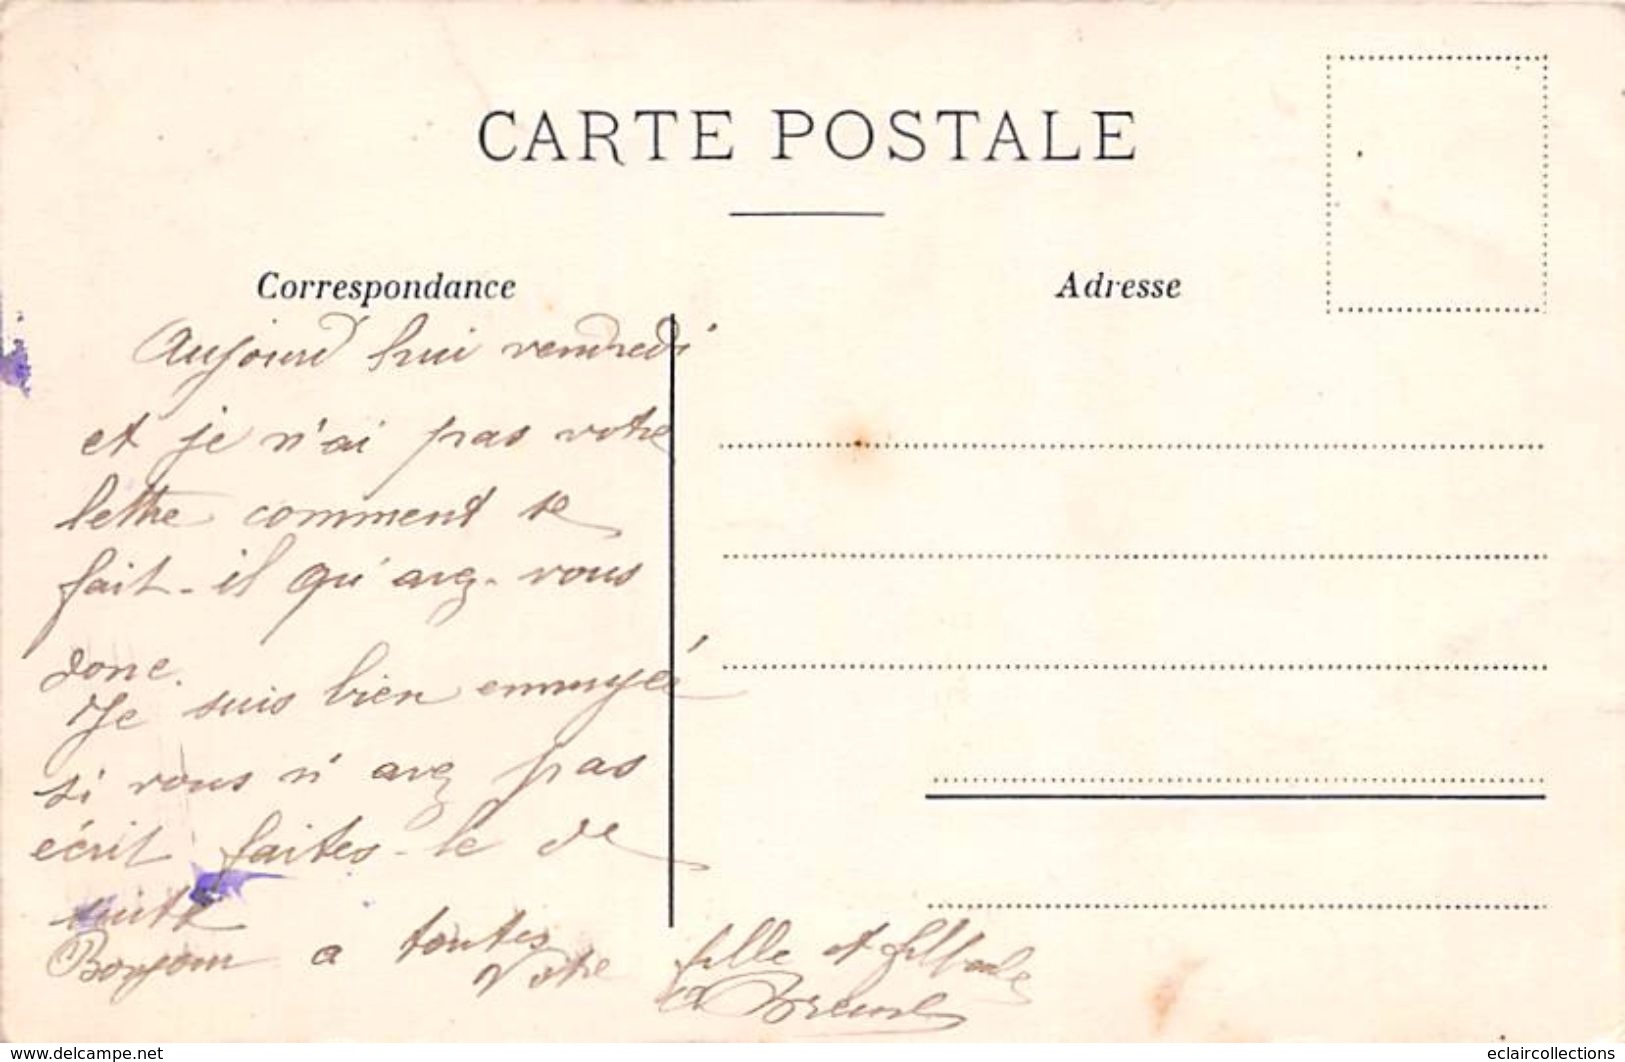 CARTE POSTALE
Correspondance
Adresse
Aujourd hui vendredi
et je n'ai pas votre
lettre comment se
fait-il qu'avez-vous
donc.
Je suis bien ennuyée
si vous n'avez pas
écrit faites-le de
suite
Bonjour a toutes
Votre fille et
www.delcampe.net
eclaircollections